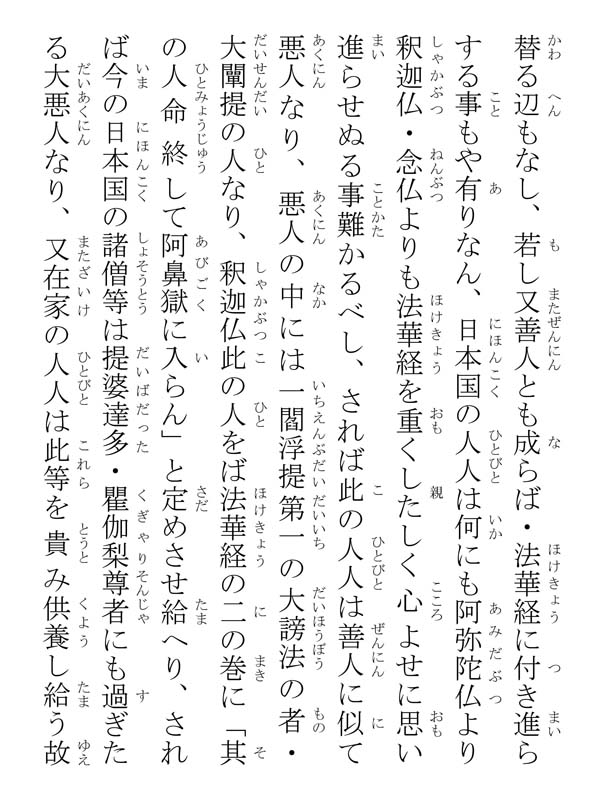 替る辺もなし、若し又善人とも成らば・法華経に付き進ら
する事もや有りなん、日本国の人人は何にも阿弥陀仏より
釈迦仏・念仏よりも法華経を重くしたしく心よせに思い
進らせぬる事難かるべし、されば此の人人は善人に似て
悪人なり、悪人の中には一閻浮提第一の大謗法の者・
大闡提の人なり、釈迦仏此の人をば法華経の二の巻に「其
の人命終して阿鼻獄に入らん」と定めさせ給へり、され
ば今の日本国の諸僧等は提婆達多・瞿伽梨尊者にも過ぎた
る大悪人なり、又在家の人人は此等を貴み供養し給う故